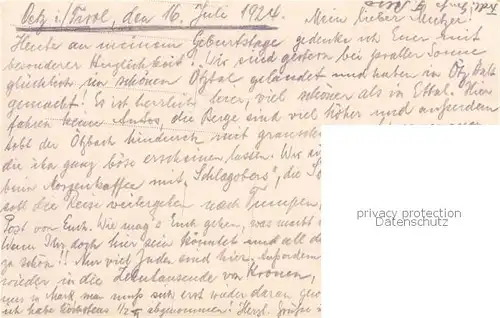 Oetz i/Tirol, den 16. Juli 1924.
Mein lieber Mutzer!
Heute an meinem Geburtstage gedenke ich Euer mit
besonderer Herzlichkeit! Wir sind gestern bei praller Sonne
glücklich im schönen Ötztal gelandet und haben in Ötz Halt
gemacht! Es ist herrlich hier, viel schöner als in Ettal. Hier
fahren keine Autos, die Berge sind viel höher und ausserdem
tobt der Ötzbach hindurch mit
die ihn ganz böse erscheinen lassen. Wir
beim Morgenkaffee mit "Schlagobers", die
soll die Reise weitergehen nach Umhausen,
Post von Euch. Wie mag's Euch gehen, was macht
Wenn Ihr doch hier sein könntet und
zu schön!! Nur viel Juden sind hier. Ausserdem
wieder in die Zehntausende von Kronen,
in Mark man muss sich erst wieder daran
ich habe höchstens 1/2 abgenommen! Herzl. Grüsse
privacy protection
Datenschutz